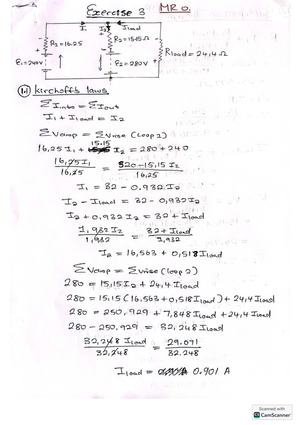 Exercise 3 MR O.
I₁ I₂ ILoad
R₁=16.25 R₂=15.15Ω RLoad=24,4Ω
E₁=240V E₂=280V
1.1 Kirchoffs laws
ΣInto = ΣIout
I₁ + ILoad = I₂
ΣVdrop = ΣVrise (Loop 1)
15.15
16,25 I₁ + I₂ = 280+240
16,25I₁ / 16,25 = 520-15,15 I₂ / 16,25
I₁ = 32 - 0.932I₂
I₂ - ILoad = 32 - 0,932I₂
I₂ + 0,932 I₂ = 32 + ILoad
1,932 I₂ / 1,932 = 32 + ILoad / 1,932
I₂ = 16,563 + 0,518 ILoad
ΣVdrop = ΣVrise (Loop 2)
280 = 15,15I₂ + 24,4 ILoad
280 = 15,15 (16,563+0,518 ILoad) + 24,4 ILoad
280 = 250,929 + 7,848 ILoad + 24,4 ILoad
280 - 250.929 = 32,248 ILoad
32,248 ILoad / 32,248 = 29.071 / 32.248
ILoad = 0.901 A
Scanned with
CS CamScanner